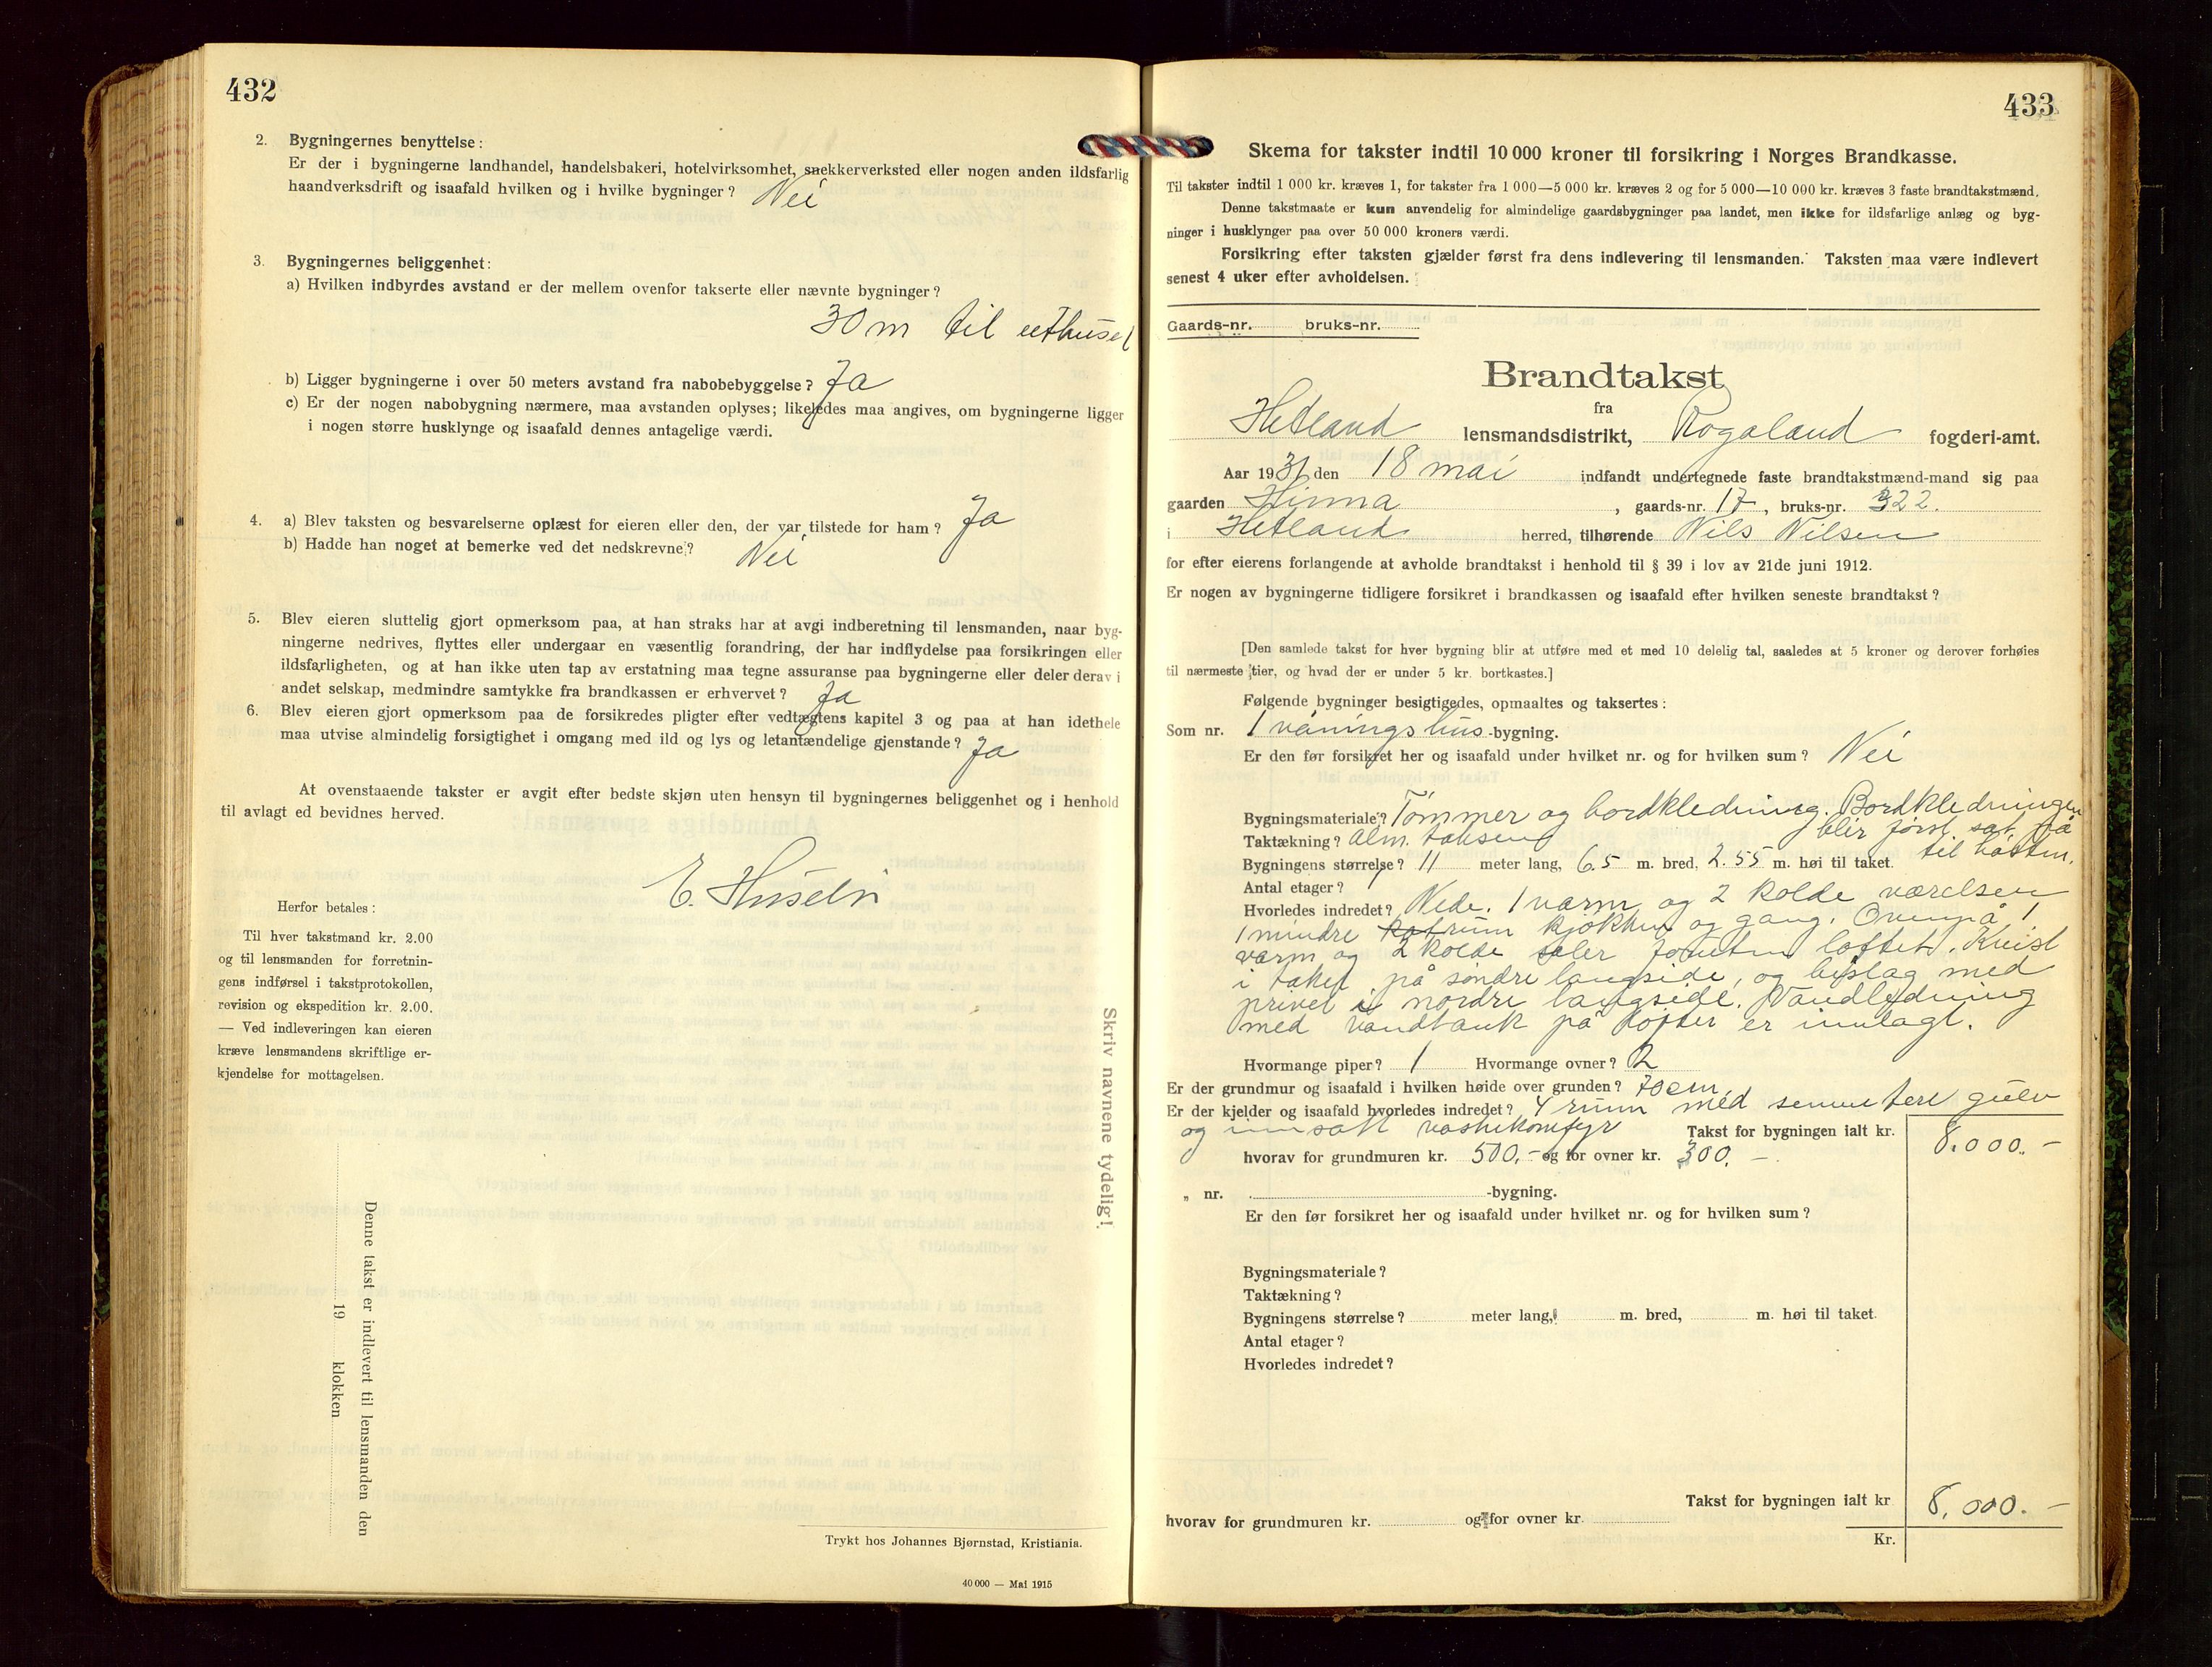 432
2. Bygningernes benyttelse:
Er der i bygningerne landhandel, handelsbakeri, hotelvirksomhet, snekkerverksted eller nogen anden ildsfarlig
haandverksdrift og isaafald hvilken og i hvilke bygninger? Nei
3. Bygningernes beliggenhet:
a) Hvilken indbyrdes avstand er der mellem ovenfor takserte eller nævnte bygninger?
30 m til uthuset
b) Ligger bygningerne i over 50 meters avstand fra nabobebyggelse? Ja
c) Er der nogen nabobygning nærmere, maa avstanden oplyses; likeledes maa angives, om bygningerne ligger
i nogen større husklynge og isaafald dennes antagelige værdi.
4. a) Blev taksten og besvarelserne oplæst for eieren eller den, der var tilstede for ham? Ja
b) Hadde han noget at bemerke ved det nedskrevne? Nei
5. Blev eieren sluttelig gjort opmerksom paa, at han straks har at avgi indberetning til lensmanden, naar byg-
ningerne nedrives, flyttes eller undergaar en væsentlig forandring, der har indflydelse paa forsikringen eller
ildsfarligheten, og at han ikke uten tap av erstatning maa tegne assuranse paa bygningerne eller deler derav i
andet selskap, medmindre samtykke fra brandkassen er erhvervet? Ja
6. Blev eieren gjort opmerksom paa de forsikredes pligter efter vedtægtens kapitel 3 og paa at han idethele
maa utvise almindelig forsigtighet i omgang med ild og lys og letantændelige gjenstande? Ja
At ovenstaaende takster er avgit efter bedste skjøn uten hensyn til bygningernes beliggenhet og i henhold
til avlagt ed bevidnes herved.
E.
Herfor betales:
Til hver takstmand kr. 2.00
og til lensmanden for forretnin-
gens indførsel i takstprotokollen,
revision og ekspedition kr. 2.00.
— Ved indleveringen kan eieren
kræve lensmandens skriftlige er-
kjendelse for mottagelsen.
Denne takst er indlevert til lensmanden den
19 klokken
Skriv navnene tydelig!
Trykt hos Johannes Bjørnstad, Kristiania.
40 000 — Mai 1915
433
Skema for takster indtil 10 000 kroner til forsikring i Norges Brandkasse.
Til takster indtil 1 000 kr. kræves 1, for takster fra 1 000—5 000 kr. kræves 2 og for 5 000—10 000 kr. kræves 3 faste brandtakstmænd.
Denne takstmaate er kun anvendelig for almindelige gaardsbygninger paa landet, men ikke for ildsfarlige anlæg og byg-
ninger i husklynger paa over 50 000 kroners værdi.
Forsikring efter taksten gjælder først fra dens indlevering til lensmanden. Taksten maa være indlevert
senest 4 uker efter avholdelsen.
Gaards-nr. bruks-nr.
Brandtakst
fra
Hetland lensmandsdistrikt, Rogaland fogderi-amt.
Aar 1931 den 18 mai indfandt undertegnede faste brandtakstmænd-mand sig paa
gaarden Hinna , gaards-nr. 17, bruks-nr. 322.
i Hetland herred, tilhørende Nils Nilsen
for efter eierens forlangende at avholde brandtakst i henhold til § 39 i lov av 21de juni 1912.
Er nogen av bygningerne tidligere forsikret i brandkassen og isaafald efter hvilken seneste brandtakst?
[Den samlede takst for hver bygning blir at utføre med et med 10 delelig tal, saaledes at 5 kroner og derover forhøies
til nærmeste tier, og hvad der er under 5 kr. bortkastes.]
Følgende bygninger besigtigedes, opmaaltes og taksertes:
Som nr. 1 våningshus-bygning.
Er den før forsikret her og isaafald under hvilket nr. og for hvilken sum? Nei
Bygningsmateriale? Tømmer og bordkledning. Bordkledningen
blir først sat på
Taktækning? Alm. taksten
til høsten.
Bygningens størrelse? 11 meter lang, 6.5 m. bred, 2.55 m. høi til taket.
Antal etager? 1
Hvorledes indredet? Nede. 1 varm og 2 kolde værelsen
1 mindre rum kjøkken og gang. Ovenpå 1
varm og 2 kolde saler foruten loftet. Kvist
i taket på søndre langside, og beslag med
privet i nordre langside. Vandledning
med vandtank på loftet er innlagt.
Hvormange piper? 1 Hvormange ovner? 2
Er der grundmur og isaafald i hvilken høide over grunden? 70 cm.
Er der kjelder og isaafald hvorledes indredet? 4 rum med sementert gulv
og innsatt vaskekomfyr Takst for bygningen ialt kr. 8.000.-
hvorav for grundmuren kr. 500.- og for ovner kr. 300.-
„ nr. -bygning.
Er den før forsikret her og isaafald under hvilket nr. og for hvilken sum?
Bygningsmateriale?
Taktækning?
Bygningens størrelse? meter lang, m. bred, m. høi til taket.
Antal etager?
Hvorledes indredet?
Takst for bygningen ialt kr 8.000.-
hvorav for grundmuren kr. og for ovner kr.
Kr.